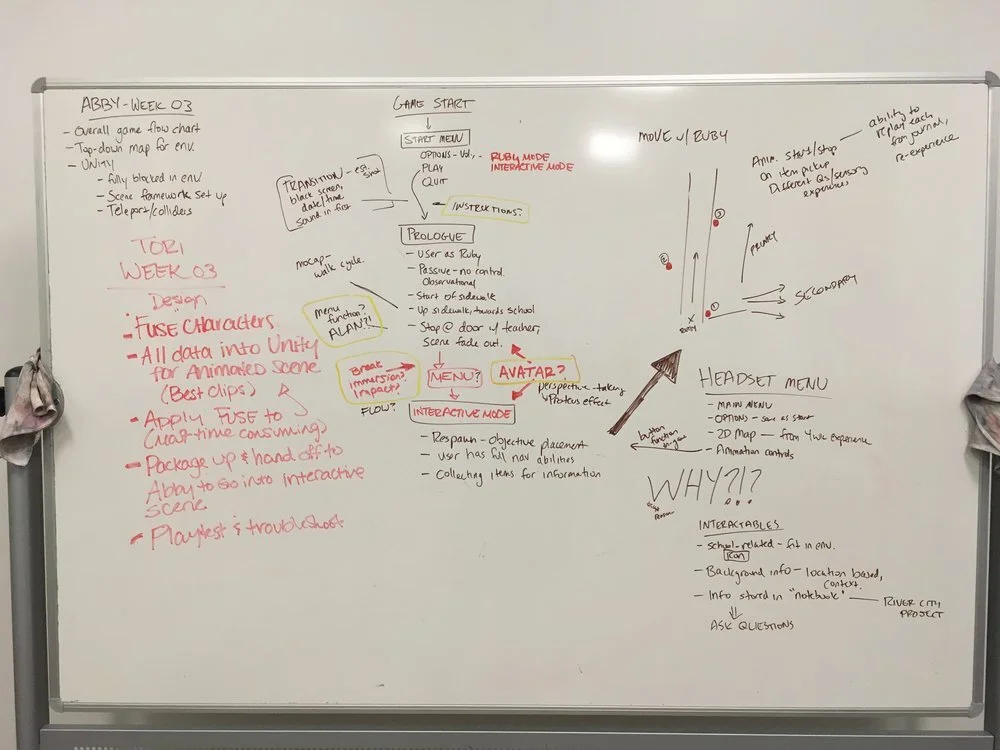 ABBY - WEEK 03
- Overall game flow chart
- Top-down map for env.
- UNITY
- fully blocked in env
- Scene framework set up
- Teleport/colliders
TORI
WEEK 03
Design
- FUSE Characters
- All data into Unity
for Animated Scene
(Best clips)
- Apply FUSE to
(real-time consuming)
- Package up & hand off to
Abby to go into interactive
scene
- Playtest & troubleshoot
GAME START
START MENU
OPTIONS - Vol,..
PLAY
QUIT
RUBY MODE
INTERACTIVE MODE
TRANSITION - est. shot
black screen,
date/time
sound in first
INSTRUCTIONS?
PROLOGUE
- User as Ruby
- Passive - no control.
Observational
- Start of sidewalk
- Up sidewalk, towards school
- Stop @ door w/ teacher,
Scene fade out.
mocap -
walk cycle.
menu
function?
ALAN?!
Break
immersion?
impact?
FLOW?
MENU?
AVATAR?
perspective-taking
Proteus effect
INTERACTIVE MODE
- Respawn - objective placement
- user has full nav abilities
- Collecting items for information
MOVE w/ RUBY
Anim. start/stop
on item pickup
Different Qs/sensory
experiences
ability to
replay each
from journal,
re-experience
③
②
①
PRIMARY
SECONDARY
X
RUBY
HEADSET MENU
- MAIN MENU
- OPTIONS - same as start
- 2D Map - from 4wk experience
- Animation controls
button
function
in game
WHY?!?
INTERACTABLES
- school-related - fit in env.
Icon
- Background info - location based,
context.
- Info stored in "notebook" - RIVER CITY
PROJECT
ASK QUESTIONS